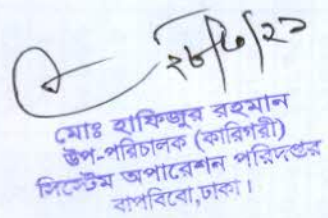 ২৮/৩/২১
মোঃ হাফিজুর রহমান
উপ-পরিচালক (কারিগরী)
সিস্টেম অপারেশন পরিদপ্তর
বাপবিবো,ঢাকা।